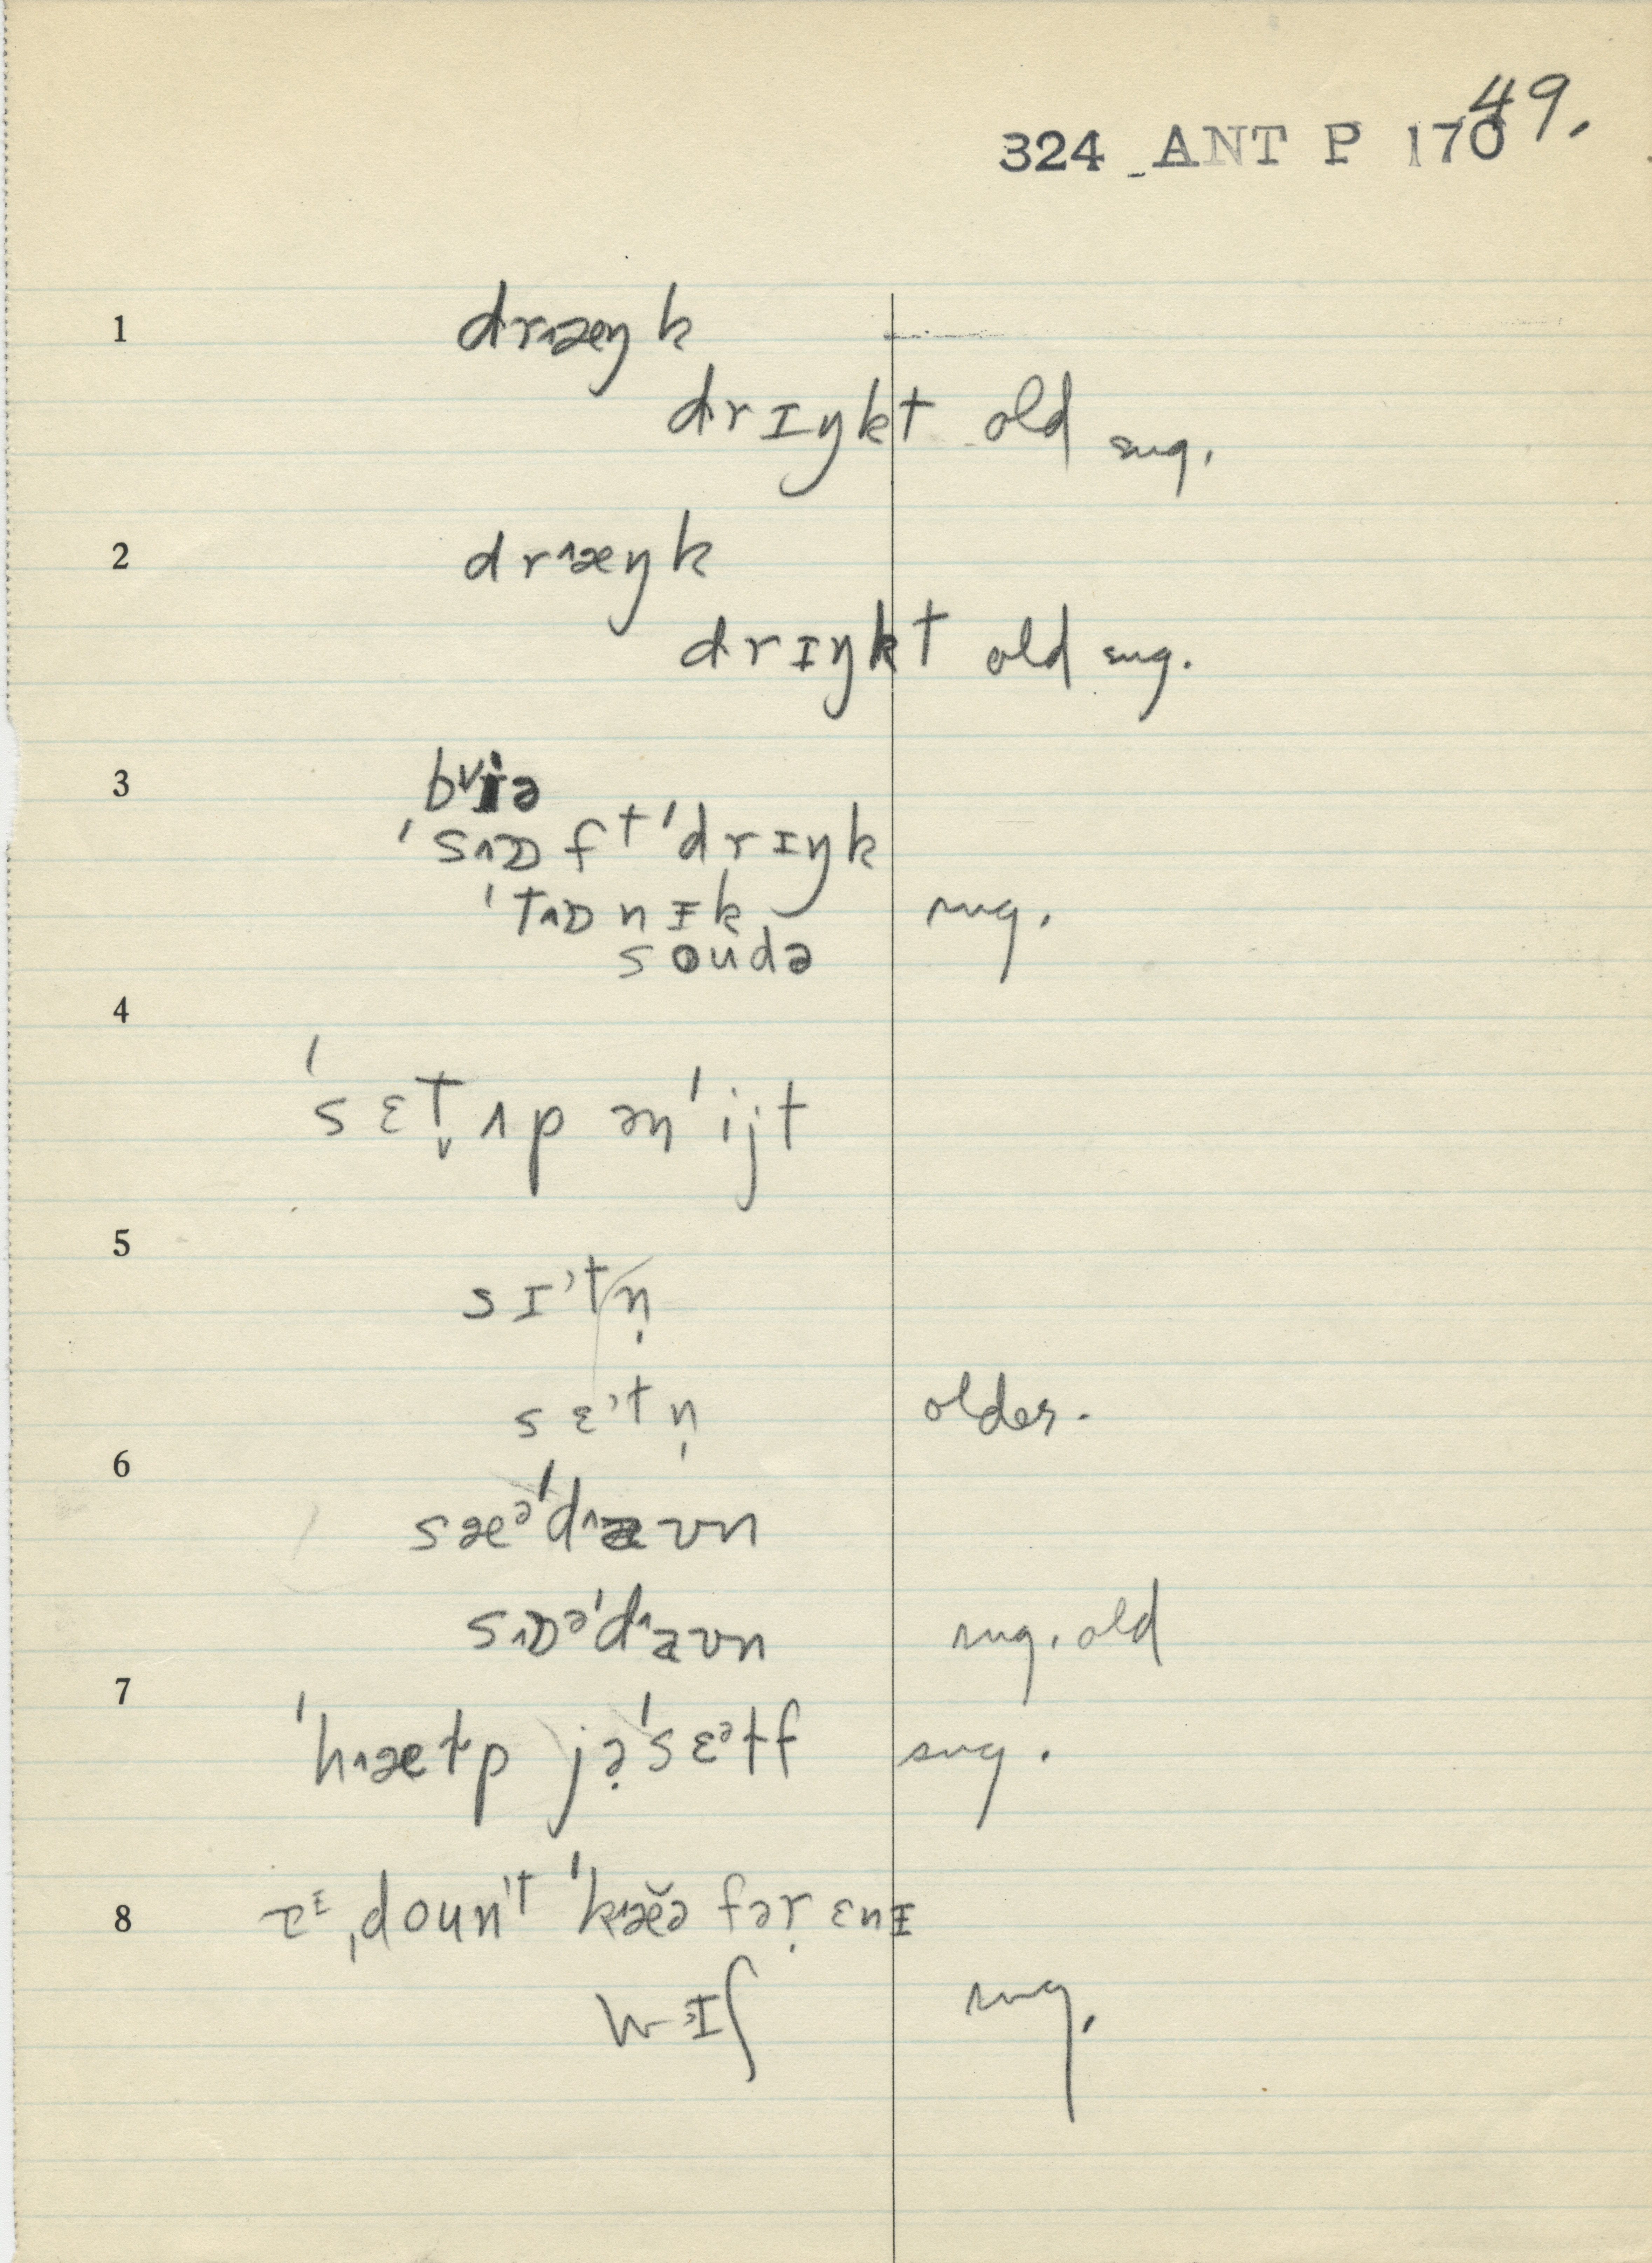 49.
324 ANT P 170
1 drʌæŋk
drɪŋkt old sug.
2 drʌæŋk
drɪŋkt old sug.
3 bᵛiə
'sʌɒft'drɪŋk
'tʌɒnɪk sug.
soudə
4
'sɛt̬ ʌp ən'ijt
5
sɪ'tn̩
sɛ'tn̩ older.
6
sæᵊ'dʌaʊn
sʌɒᵊ'dʌaʊn sug. old
7
'hʌætp jə̣'sɛᵊtf sug.
8 ˌdoun't 'kʌæ̆ə fəṛ ɛnɪ
sug.